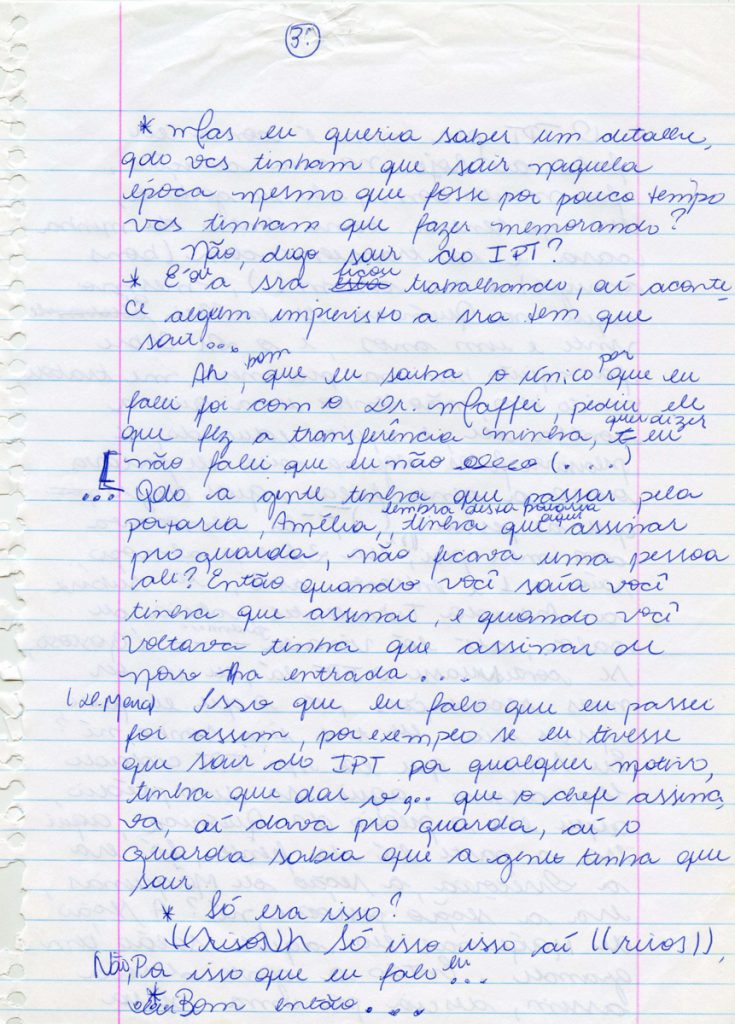 3.
* Mas eu queria saber um detalhe,
qdo vcs tinham que sair naquela
época mesmo que fosse por pouco tempo
vcs tinham que fazer memorando?
Não, digo sair do IPT?
* E a sra ficou trabalhando, aí aconte-
ce algum imprevisto a sra tem que
sair...
Ah, bom que eu saiba o único por que eu
falei foi com o Dr. Maffei, pediu ele
que fez a transferência minha, quer dizer eu
não falei que eu não (...)
[... Qdo a gente tinha que passar pela
portaria, Amélia, lembra desta portaria aqui, tinha que assinar
pro guarda, não ficava uma pessoa
ali? Então quando você saía você
tinha que assinar, e quando você
voltava tinha que assinar de
novo na entrada....
Isso que eu falo que eu passei
foi assim, por exemplo se eu tivesse
que sair do IPT por qualquer motivo,
tinha que dar o... que o chefe assina-
va, aí dava pro guarda, aí o
guarda sabia que a gente tinha que
sair
* Só era isso?
((risos)) Só isso isso aí ((risos)),
Não, isso que eu falo eu...
* Bom então....